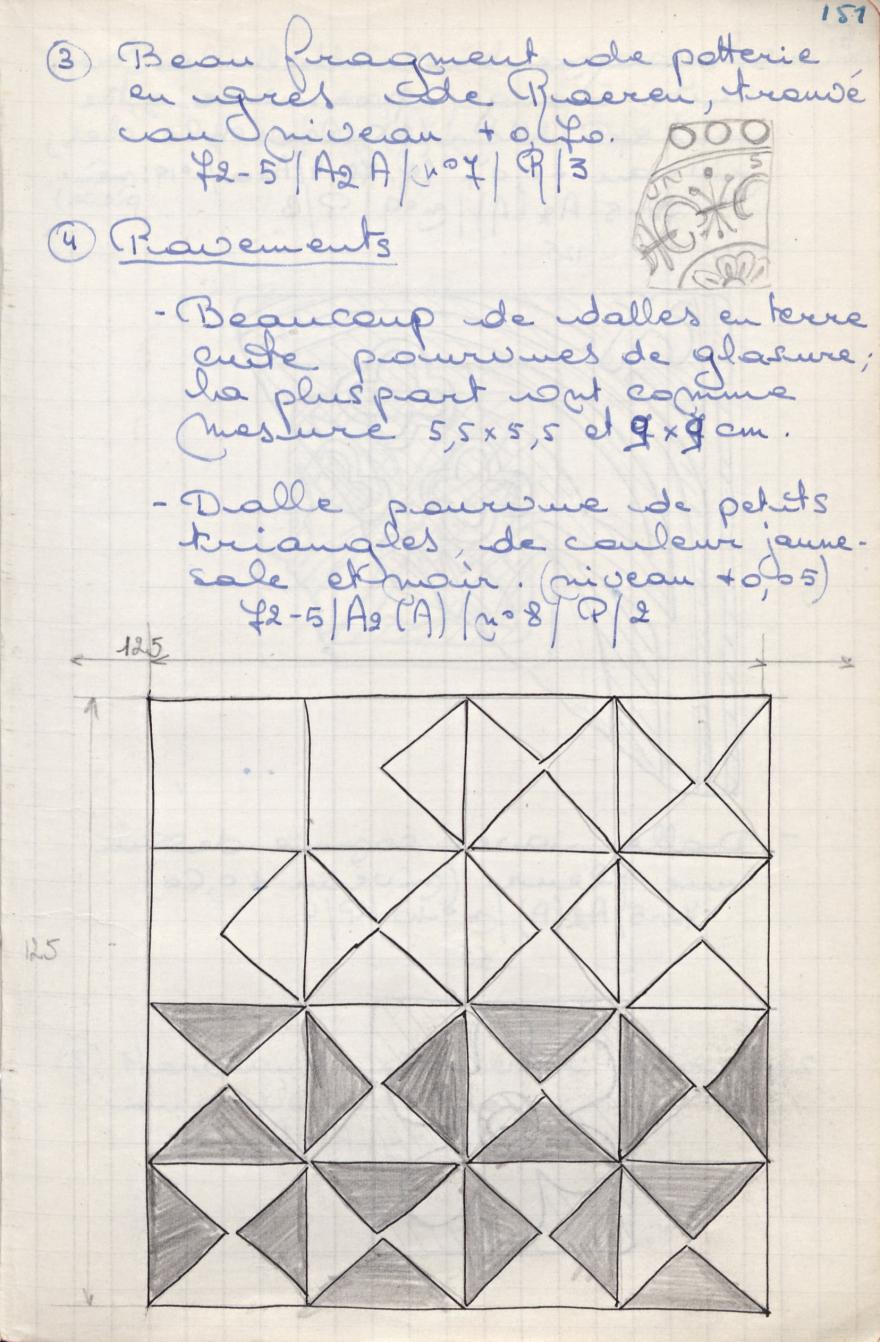 151
③ Beau fragment de potterie
en grès de Raeren, trouvé
au niveau +0,70.
72-5/A2A/n°7/P/3
UN
S
④ Pavements
- Beaucoup de dalles en terre
cuite pourvues de glasure;
la pluspart ont comme
mesure 5,5x5,5 et 9x9 cm.
- Dalle pourvue de petits
triangles, de couleur jaune-
sale et noir. (niveau +0,05)
72-5/A2(A)/n°8/P/2
125
125